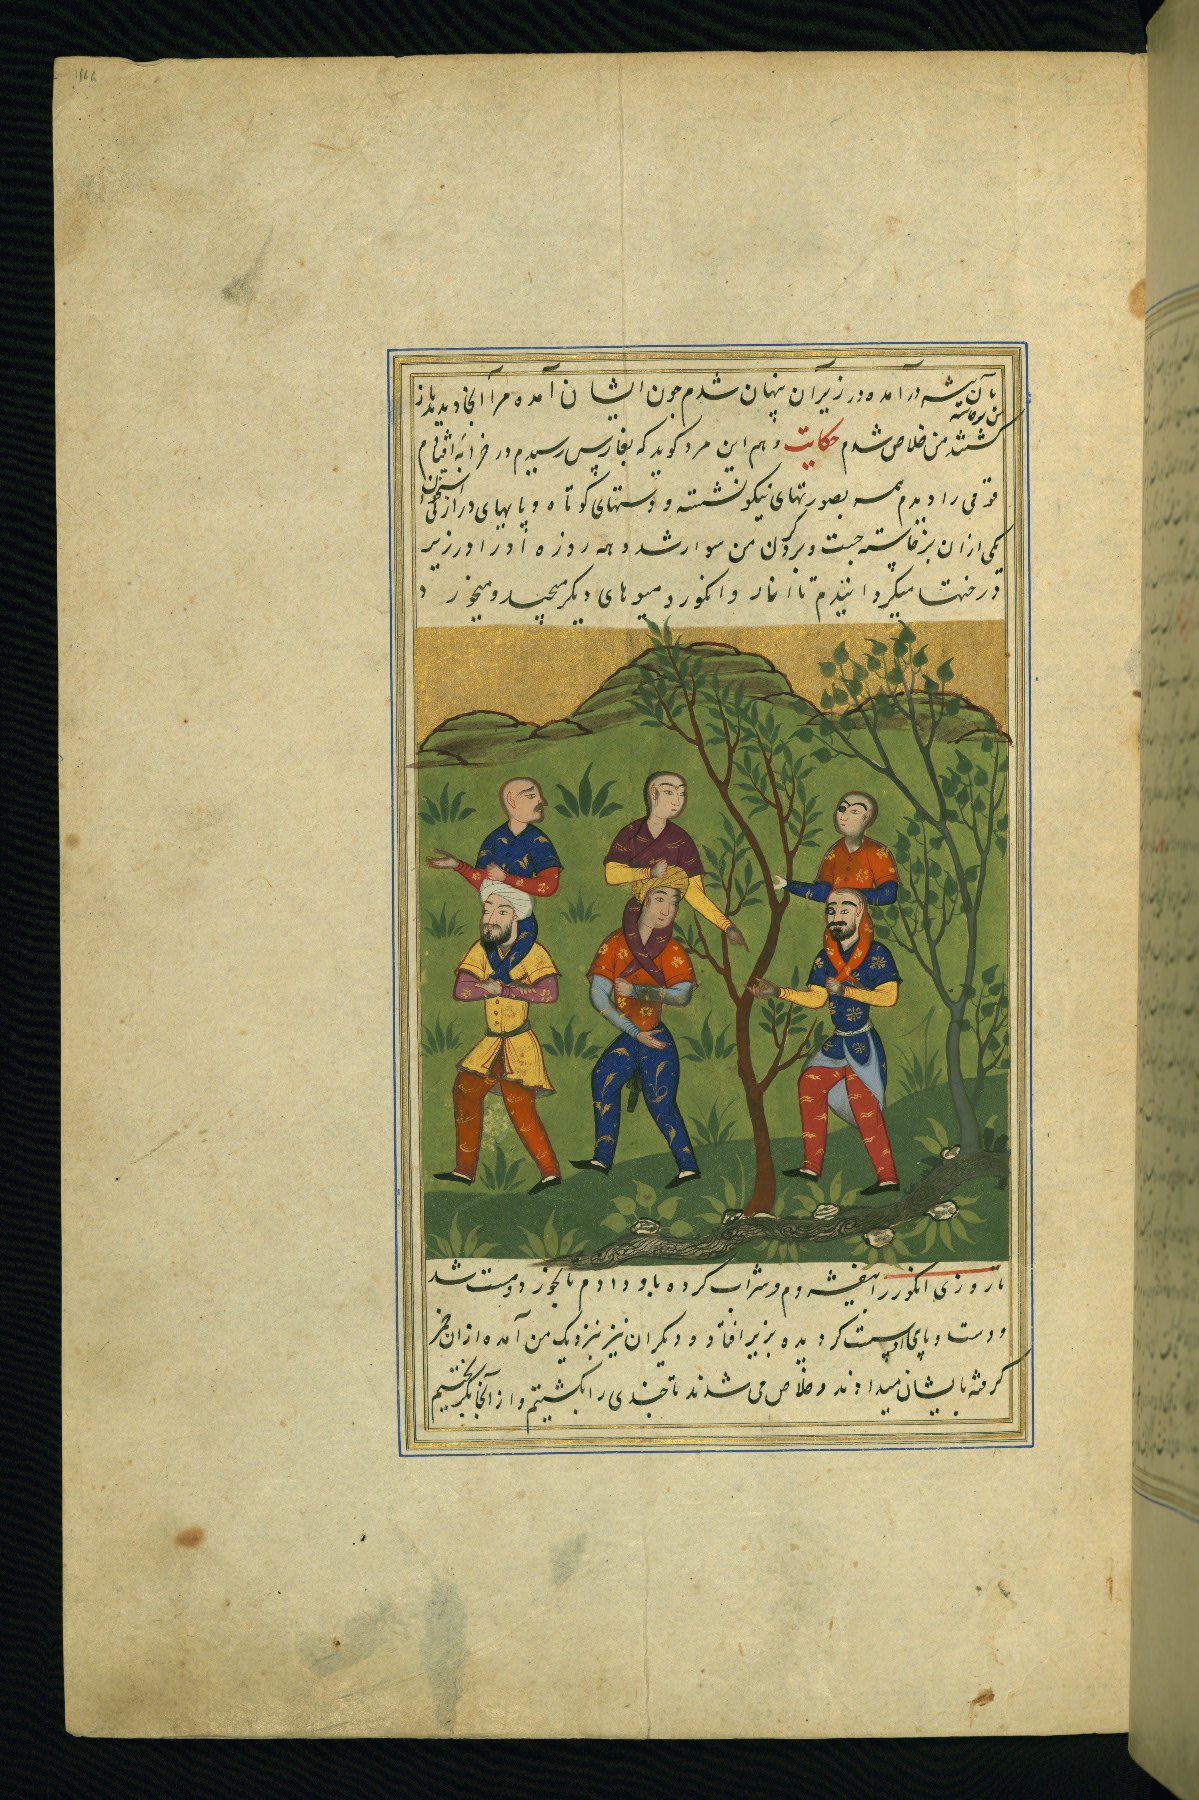 ۱۶۶
بآن بیشه درآمده در زیر آن پنهان شدم چون ایشان آمده مرا آنجا ندیدند باز
گشتند من خلاص شدم حکایت و هم این مرد کوید که بفارس رسیدم در خرانه افتادم
قومی را دیدم همه بصورتهای نیکو نشسته و دستهای کوتاه و پایهای دراز
یکی از آن برخاسته جست و بر کردن من سوار شد و همه روزه او را در زیر
درختها میکردانیدم تا انار و انکور و میوهای دیکر میچید و میخورد
تا روزی انکور را بیفشردم و شراب کرده باو دادم تا بخورد و مست شد
و دست و پای او سست کردیده بزیر افتاد و دیکران نیز بنزدیک من آمده از ان خمر
کرفته بایشان میدادند و خلاص می شدند تا چندی را بکشتیم و از آنجا بکریختیم